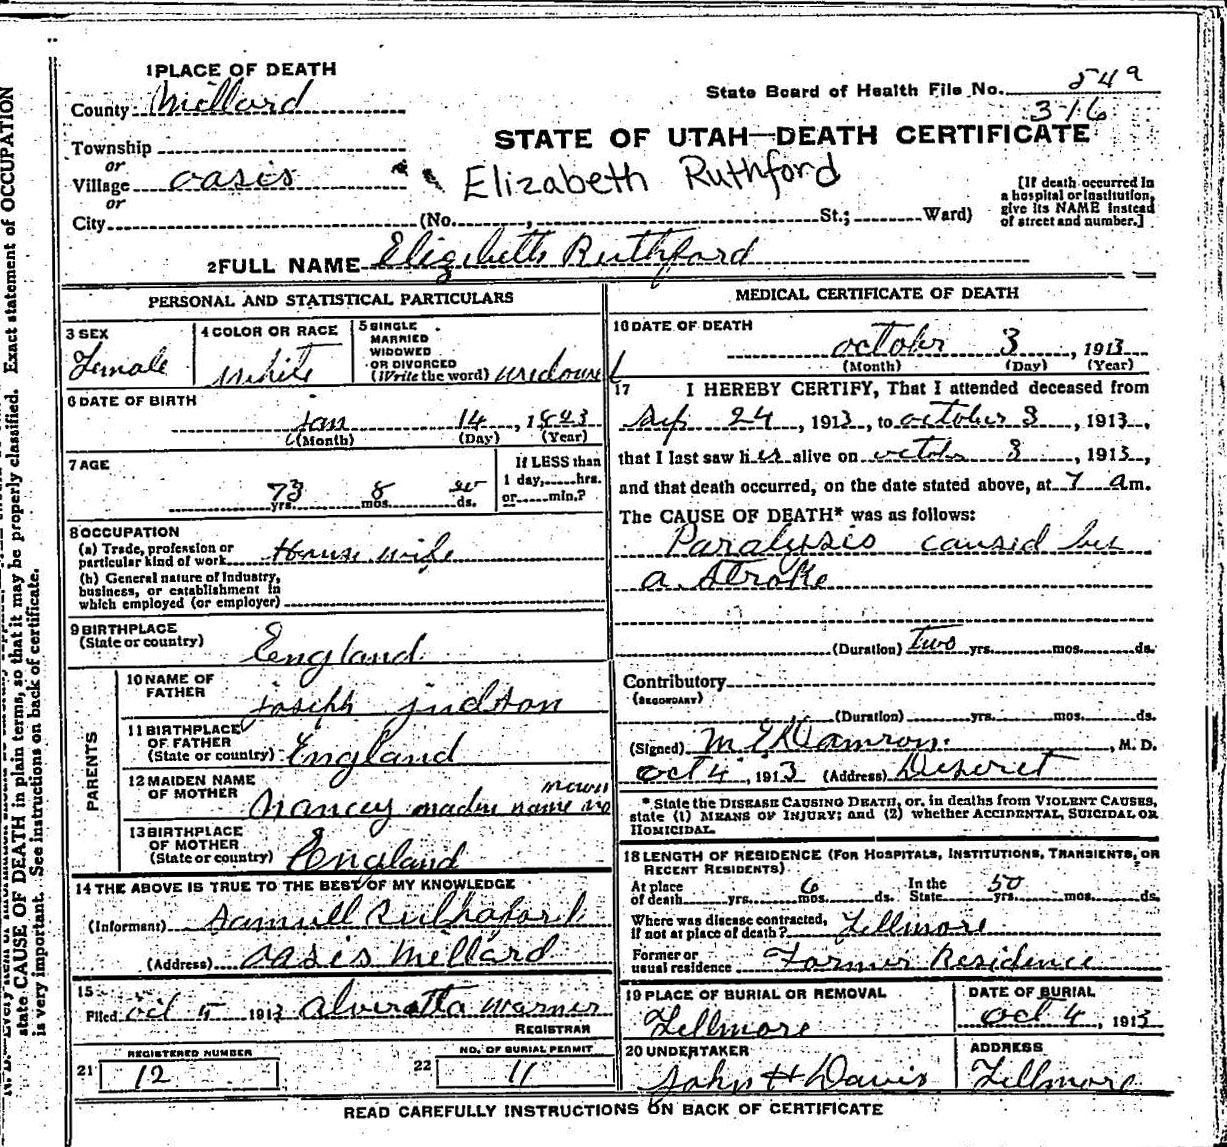 1 PLACE OF DEATH
County Millard
State Board of Health File No. 54a
3-16
STATE OF UTAH—DEATH CERTIFICATE
Township
or
Village oasis
or
City
Elizabeth Ruthford
(No. , St.; Ward)
[If death occurred in
a hospital or institution,
give its NAME instead
of street and number.]
2 FULL NAME Elizibeth Ruthford
PERSONAL AND STATISTICAL PARTICULARS
3 SEX
Female
4 COLOR OR RACE
White
5 SINGLE
MARRIED
WIDOWED
OR DIVORCED
(Write the word) Widowed
6 DATE OF BIRTH
Jan 14, 1823
(Month) (Day) (Year)
7 AGE
73 yrs. 8 mos. ds.
If LESS than
1 day, hrs.
or min.?
8 OCCUPATION
(a) Trade, profession or
particular kind of work House wife
(b) General nature of Industry,
business, or establishment in
which employed (or employer)
9 BIRTHPLACE
(State or country) England
PARENTS
10 NAME OF
FATHER Joseph judson
11 BIRTHPLACE
OF FATHER
(State or country) England
12 MAIDEN NAME
OF MOTHER Nancey name no
13 BIRTHPLACE
OF MOTHER
(State or country) England
14 THE ABOVE IS TRUE TO THE BEST OF MY KNOWLEDGE
(Informant) Samuell
(Address) oasis Millard
15
Filed oct 5 1913 Alveretta Warner
REGISTRAR
REGISTERED NUMBER
21 12
NO. OF BURIAL PERMIT
22 11
MEDICAL CERTIFICATE OF DEATH
16 DATE OF DEATH
octobr 3, 1913
(Month) (Day) (Year)
17 I HEREBY CERTIFY, That I attended deceased from
Sep 24, 1913, to october 3, 1913,
that I last saw her alive on octobr 3, 1913,
and that death occurred, on the date stated above, at 7 am.
The CAUSE OF DEATH* was as follows:
Paralysis caused by
a stroke
(Duration) Two yrs. mos. ds.
Contributory
(SECONDARY)
(Duration) yrs. mos. ds.
(Signed) M E Damron, M. D.
oct 4, 1913 (Address) Deseret
* State the DISEASE CAUSING DEATH, or, in deaths from VIOLENT CAUSES,
state (1) MEANS OF INJURY; and (2) whether ACCIDENTAL, SUICIDAL OR
HOMICIDAL.
18 LENGTH OF RESIDENCE (FOR HOSPITALS, INSTITUTIONS, TRANSIENTS, OR
RECENT RESIDENTS)
At place
of death yrs. 6 mos. ds. In the
State 50 yrs. mos. ds.
Where was disease contracted,
if not at place of death? Fillmore
Former or
usual residence Former Residence
19 PLACE OF BURIAL OR REMOVAL
Fillmore
DATE OF BURIAL
Oct 4, 1913
20 UNDERTAKER
John H Davis
ADDRESS
Fillmore
READ CAREFULLY INSTRUCTIONS ON BACK OF CERTIFICATE
state CAUSE OF DEATH in plain terms, so that it may be properly classified. Exact statement of OCCUPATION
is very important. See instructions on back of certificate.